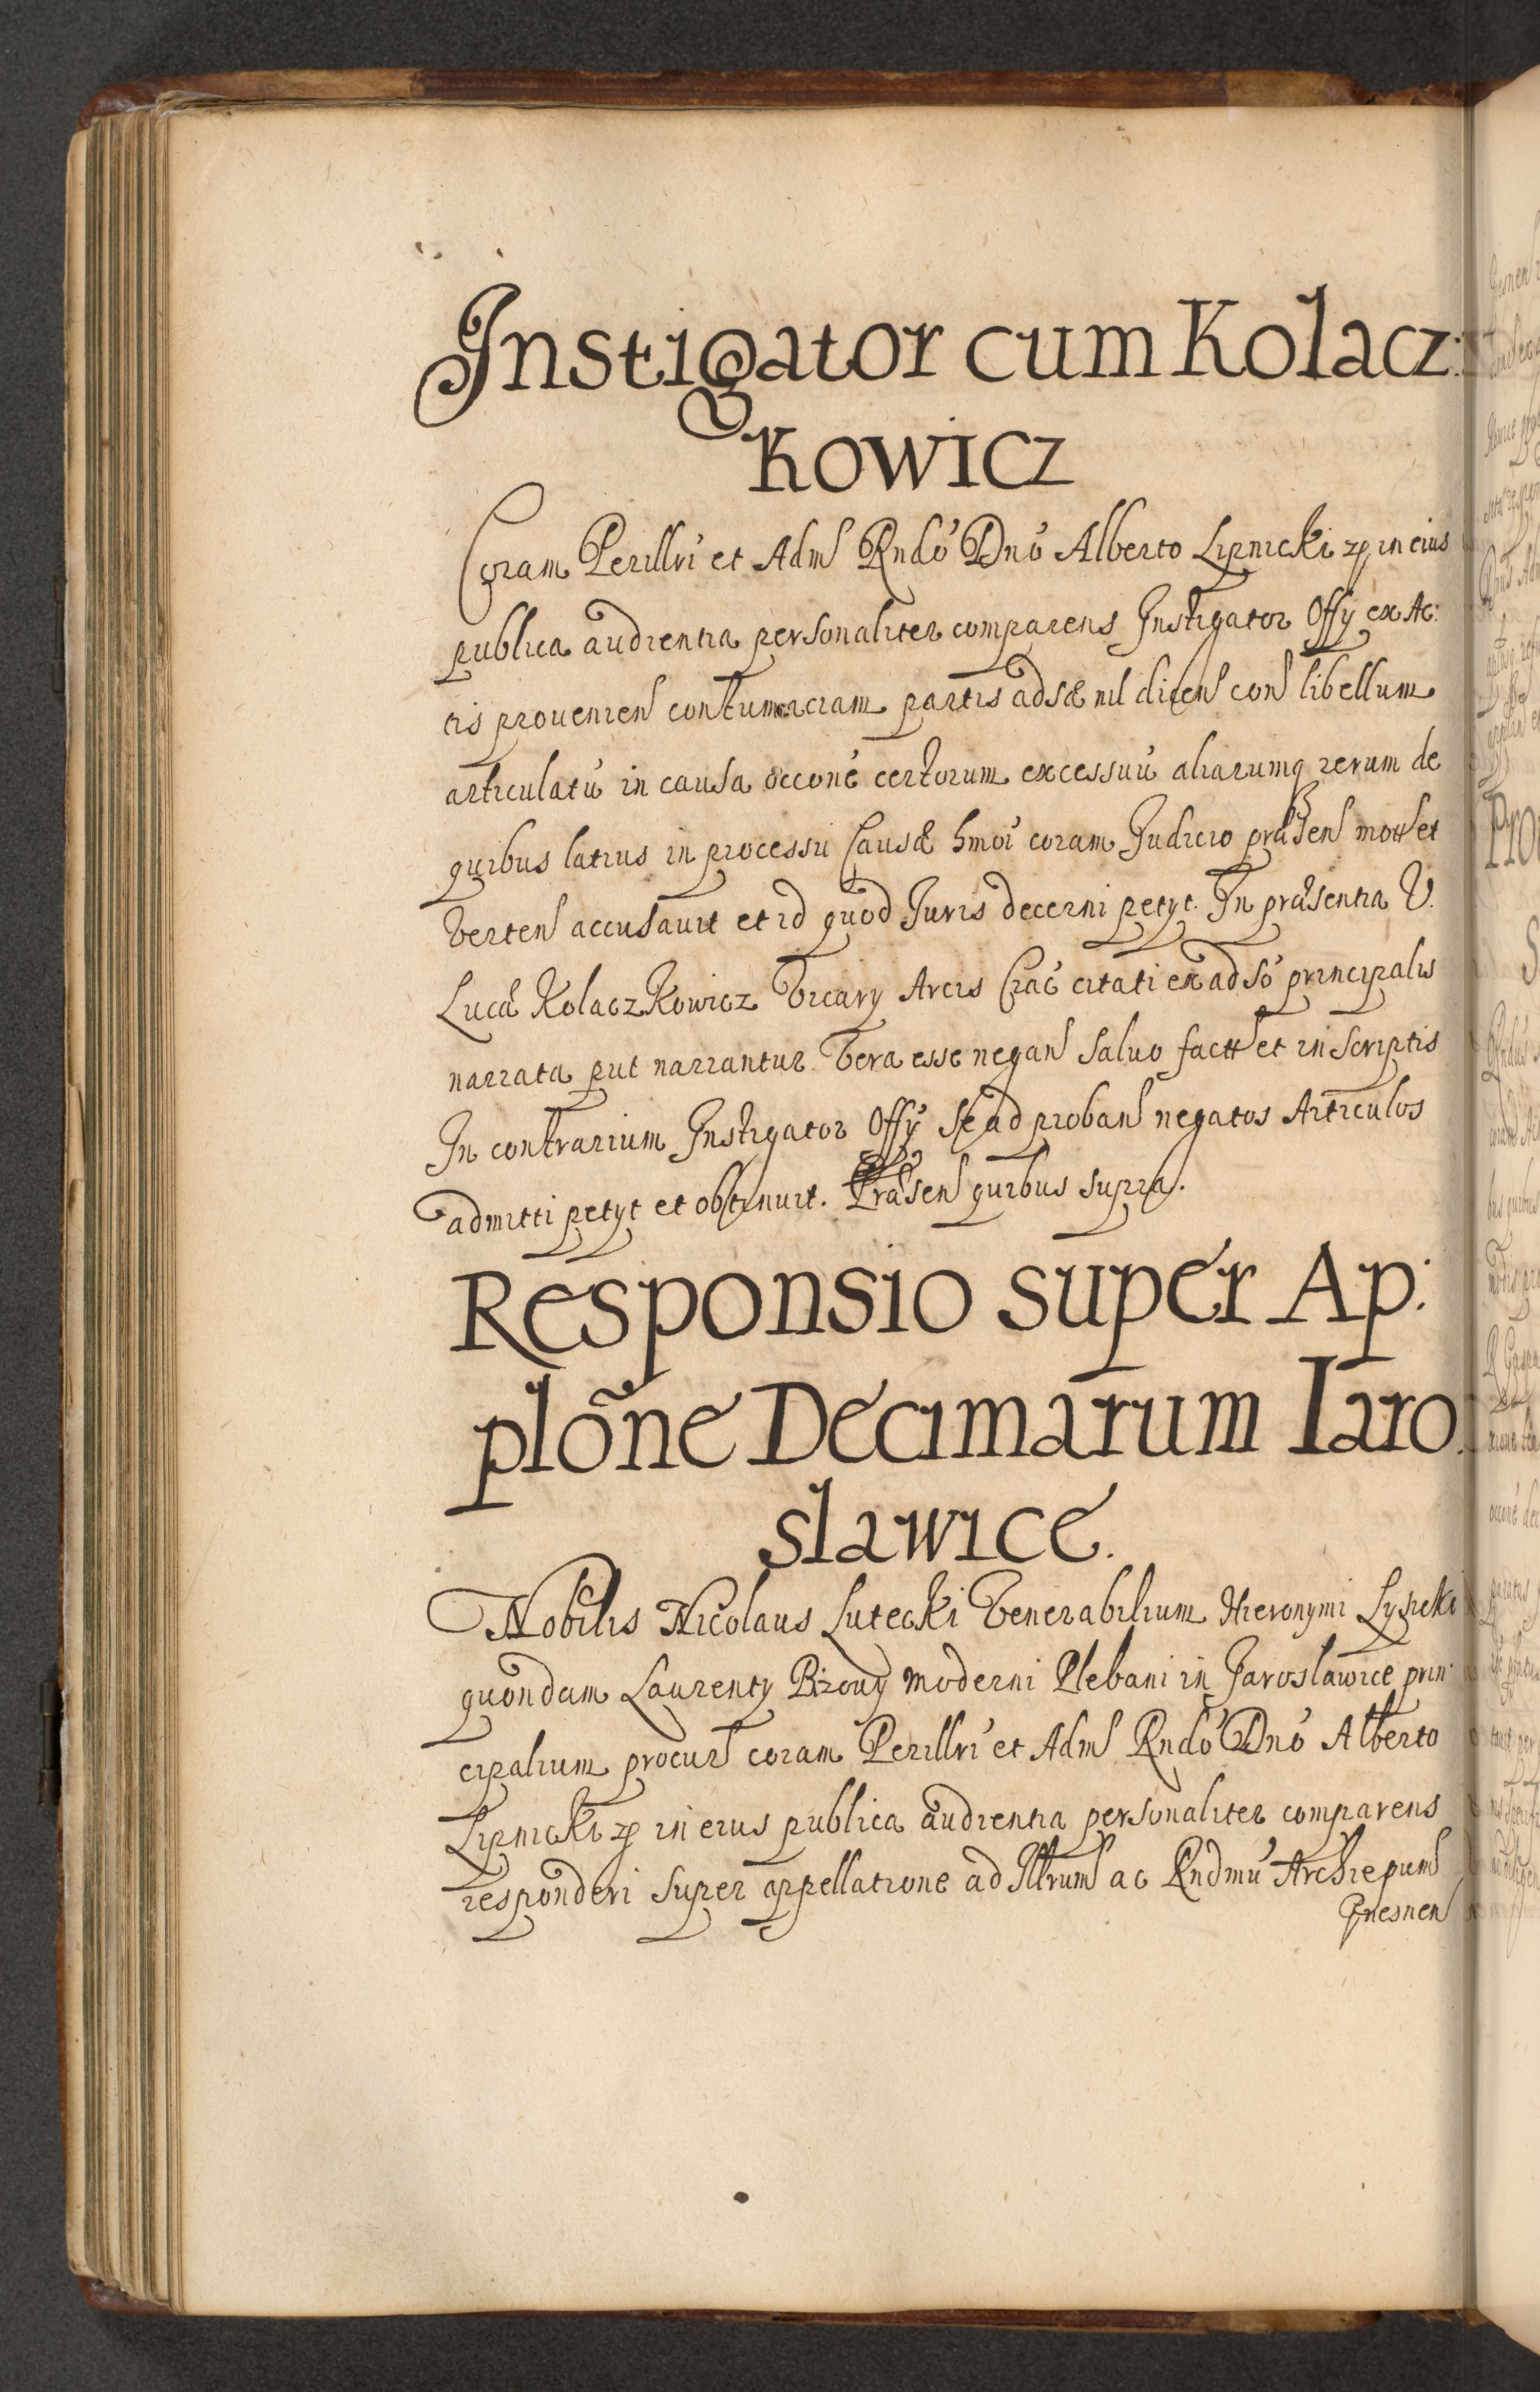 Instigator cum Kolacz:
kowicz
Coram Perillri et Adm Rndo Dno Alberto Lipnicki zp in eius
publica audientia personaliter comparens Instigator Offy ex Ac:
tis provenien contumaciam partis adsæ nil dicen con libellum
articulatu in causa occone certorum excessuu aliarumq rerum de
quibus latius in processu Causæ hmoi coram Judicio præsen mott et
verten accusavit et id quod Juris decerni petyt. In præsentia V.
Lucæ Kolaczkowicz Vicary Arcis Crac citati ex adso principalis
narrata put narrantur Vera esse negan salvo factt et in scriptis
In contrarium Instigator Offy se ad proban negatos Articulos
admitti petyt et obtinuit. Præsen quibus supra.
Responsio super Ap:
plone Decimarum Iaro:
slawice.
Nobilis Nicolaus Lutecki Venerabilium Hieronymi Lysicki
quondam Laurenty Bizovy moderni Plebani in Jaroslawice prin:
cipalium procur coram Perillri et Adm Rndo Dno Alberto
Lipnicki zp in eius publica audientia personaliter comparens
responderi super appellatione ad Illrum ac Rndmu Archiepum
Gnesnen